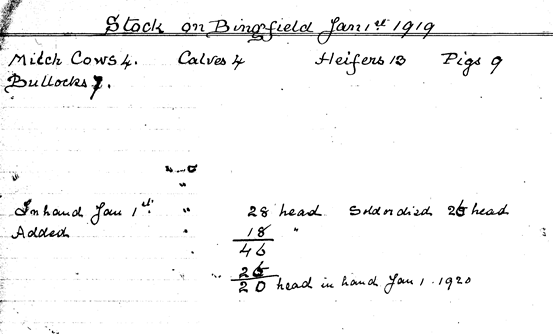 Stock on Bingfield Jan 1st 1919
Milch Cows 4. Calves 4 Heifers 13 Pigs 9
Bullocks 7.
"
"
In hand Jan 1st " 28 head Sold or died 26 head
Added " 18 "
46
" 26
20 head in hand Jan 1. 1920